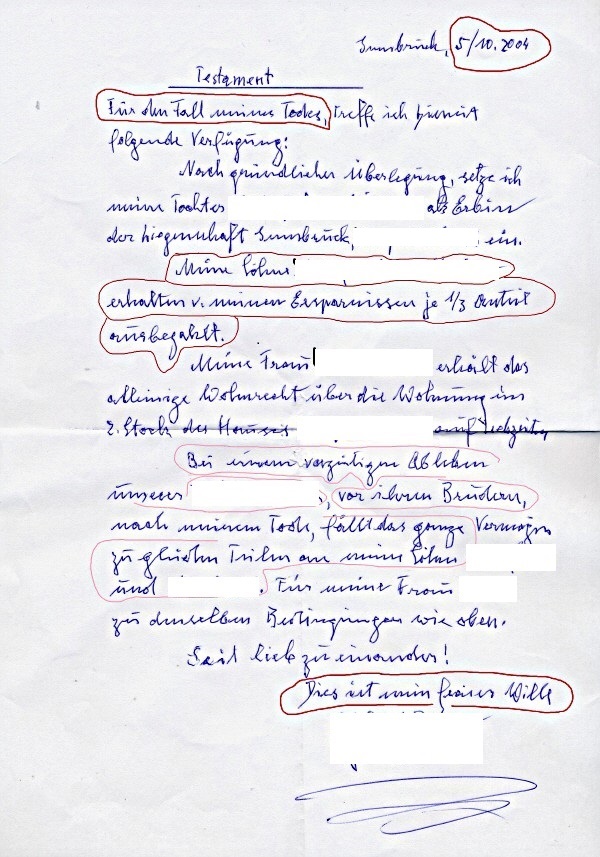 Innsbruck, 5/10.2004
Testament
Für den Fall meines Todes, treffe ich hiermit
folgende Verfügung:
Nach gründlicher Überlegung, setze ich
meine Tochter als Erbin
der Liegenschaft Innsbruck, , ein.
Meine Söhne
erhalten v. meinen Ersparnissen je 1/3 Anteil
ausbezahlt.
Meine Frau erhält das
alleinige Wohnrecht über die Wohnung im
2. Stock des Hauses auf Lebzeiten
Bei einem vorzeitigen Ableben
unserer , vor ihren Brüdern,
nach meinem Tode, fällt das ganze Vermögen
zu gleichen Teilen an meine Söhne
und . Für meine Frau
zu denselben Bedingungen wie oben.
Seid lieb zu einander!
Dies ist mein freier Wille